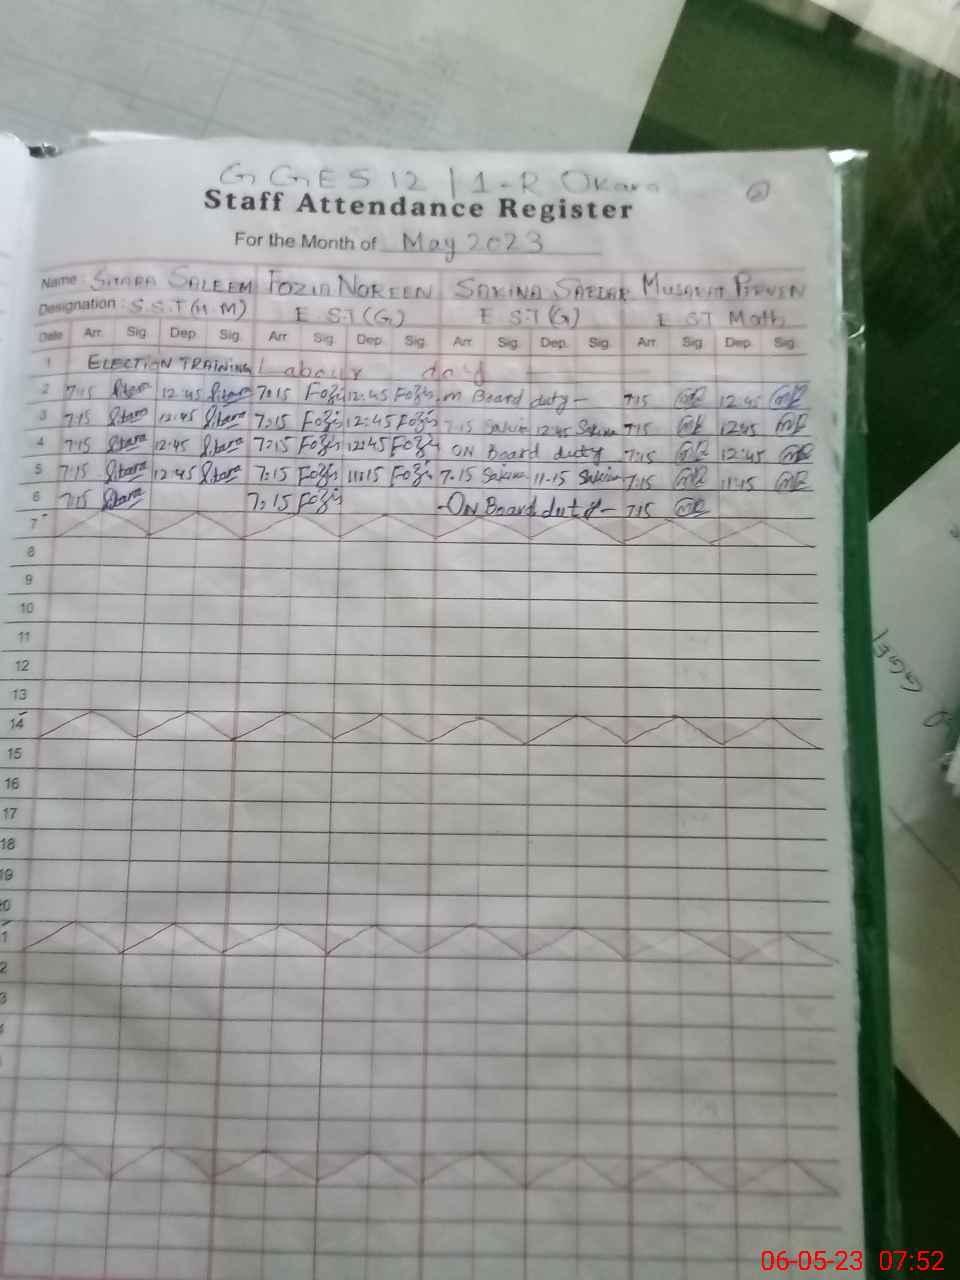 GGES 12/1-R Okara
Staff Attendance Register
For the Month of May 2023
Name: SITARA SALEEM FOZIA NOREEN SAKINA SAFDAR MUSARAT PERVEEN
Designation: S.S.T (H.M) E.S.T (G) E S.T (G) E ST Math
Date Arr. Sig. Dep. Sig. Arr. Sig. Dep. Sig. Arr. Sig. Dep. Sig. Arr. Sig. Dep. Sig.
1 ELECTION TRAINING Labour day
2 7:15 Sitara 12:45 Sitara 7:15 Fozia 12:45 Fozia on Board duty- 7:15 12:45
3 7:15 Sitara 12:45 Sitara 7:15 Fozia 12:45 Fozia 7:15 Sakina 12:45 Sakina 7:15 12:45
4 7:15 Sitara 12:45 Sitara 7:15 Fozia 12:45 Fozia ON Board duty 7:15 12:45
5 7:15 Sitara 12:45 Sitara 7:15 Fozia 11:15 Fozia 7.15 Sakina 11.15 Sakina 7:15 11:45
6 7:15 Sitara 7:15 Fozia -ON Board duty- 7:15
7
8
9
10
11
12
13
14
15
16
17
18
19
0
1
2
3
GGE/
06-05-23 07:52